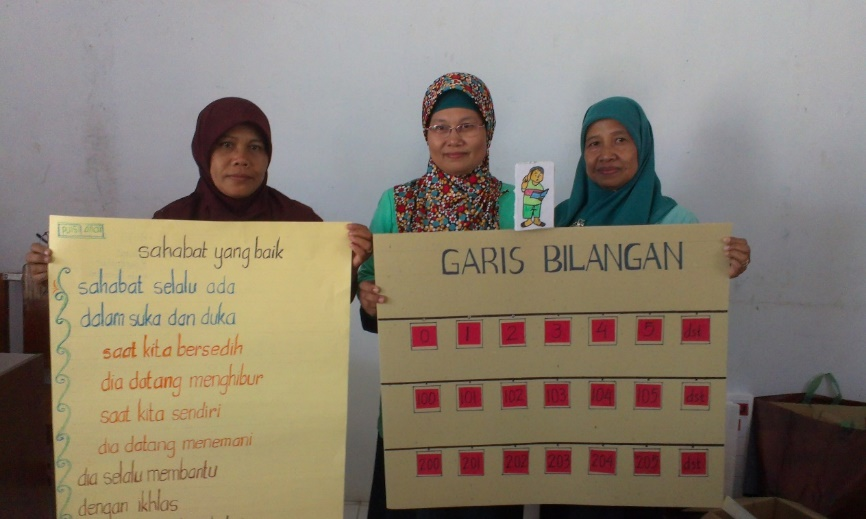 sahabat yang baik
sahabat selalu ada
dalam suka dan duka
saat kita bersedih
dia datang menghibur
saat kita sendiri
dia datang menemani
dia selalu membantu
dengan ikhlas
GARIS BILANGAN
0 1 2 3 4 5 dst
100 101 102 103 104 105 dst
200 201 202 203 204 205 dst